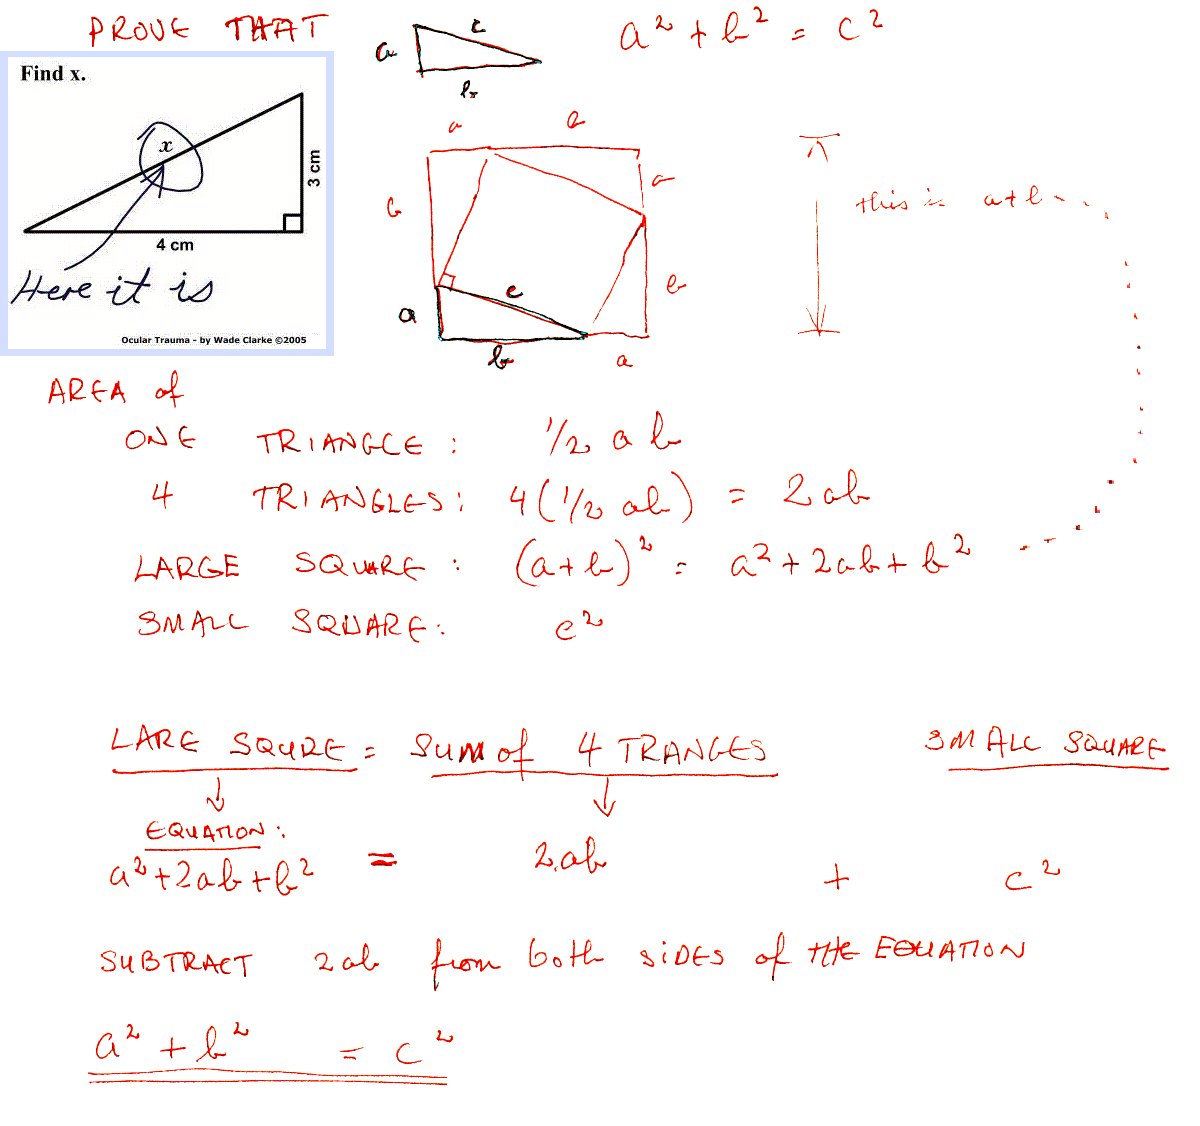 PROVE THAT
a c b
a² + b² = c²
Find x.
x
3 cm
4 cm
Here it is
Ocular Trauma - by Wade Clarke ©2005
a b
b a
c b
a b a
this is a+b
AREA of
ONE TRIANGLE : 1/2 ab
4 TRIANGLES: 4(1/2 ab) = 2ab
LARGE SQUARE : (a+b)² = a²+2ab+b²
SMALL SQUARE: c²
LARE SQURE = Sum of 4 TRANGES SMALL SQUARE
EQUATION:
a²+2ab+b² = 2ab + c²
SUBTRACT 2ab from both SIDES of THE EQUATION
a² + b² = c²